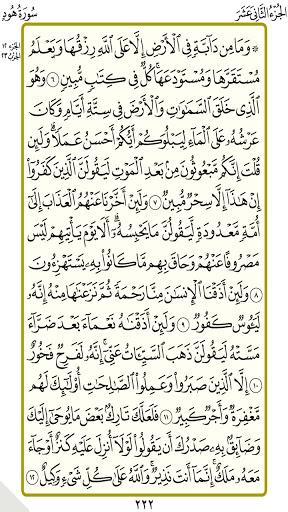 الجزء الثاني عشر
سورة هود
الجزء ١٢
الحزب ٢٣
۞ وَمَا مِن دَآبَّةٍ فِي ٱلْأَرْضِ إِلَّا عَلَى ٱللَّهِ رِزْقُهَا وَيَعْلَمُ
مُسْتَقَرَّهَا وَمُسْتَوْدَعَهَا ۚ كُلٌّ فِي كِتَٰبٍ مُّبِينٍ ٦ وَهُوَ
ٱلَّذِي خَلَقَ ٱلسَّمَٰوَٰتِ وَٱلْأَرْضَ فِي سِتَّةِ أَيَّامٍ وَكَانَ
عَرْشُهُۥ عَلَى ٱلْمَآءِ لِيَبْلُوَكُمْ أَيُّكُمْ أَحْسَنُ عَمَلًا ۗ وَلَئِن
قُلْتَ إِنَّكُم مَّبْعُوثُونَ مِنۢ بَعْدِ ٱلْمَوْتِ لَيَقُولَنَّ ٱلَّذِينَ كَفَرُوٓا۟
إِنْ هَٰذَآ إِلَّا سِحْرٌ مُّبِينٌ ٧ وَلَئِنْ أَخَّرْنَا عَنْهُمُ ٱلْعَذَابَ إِلَىٰٓ
أُمَّةٍ مَّعْدُودَةٍ لَّيَقُولُنَّ مَا يَحْبِسُهُۥٓ ۗ أَلَا يَوْمَ يَأْتِيهِمْ لَيْسَ
مَصْرُوفًا عَنْهُمْ وَحَاقَ بِهِم مَّا كَانُوا۟ بِهِۦ يَسْتَهْزِءُونَ
٨ وَلَئِنْ أَذَقْنَا ٱلْإِنسَٰنَ مِنَّا رَحْمَةً ثُمَّ نَزَعْنَٰهَا مِنْهُ إِنَّهُۥ
لَيَـُٔوسٌ كَفُورٌ ٩ وَلَئِنْ أَذَقْنَٰهُ نَعْمَآءَ بَعْدَ ضَرَّآءَ
مَسَّتْهُ لَيَقُولَنَّ ذَهَبَ ٱلسَّيِّـَٔاتُ عَنِّيٓ ۚ إِنَّهُۥ لَفَرِحٌ فَخُورٌ
١٠ إِلَّا ٱلَّذِينَ صَبَرُوا۟ وَعَمِلُوا۟ ٱلصَّٰلِحَٰتِ أُو۟لَٰٓئِكَ لَهُم
مَّغْفِرَةٌ وَأَجْرٌ كَبِيرٌ ١١ فَلَعَلَّكَ تَارِكٌۢ بَعْضَ مَا يُوحَىٰٓ إِلَيْكَ
وَضَآئِقٌۢ بِهِۦ صَدْرُكَ أَن يَقُولُوا۟ لَوْلَآ أُنزِلَ عَلَيْهِ كَنزٌ أَوْ جَآءَ
مَعَهُۥ مَلَكٌ ۚ إِنَّمَآ أَنتَ نَذِيرٌ ۚ وَٱللَّهُ عَلَىٰ كُلِّ شَيْءٍ وَكِيلٌ ١٢
٢٢٢